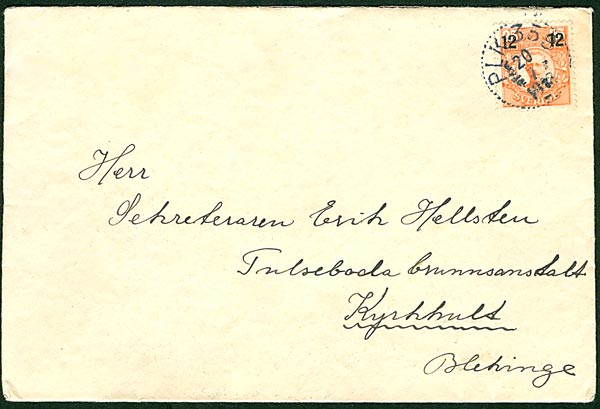 PLK 35
12 12
20
7
Herr
Sekreteraren Erik Hellsten
Tulseboda brunnsanstalt
Kyrkhult
Blekinge